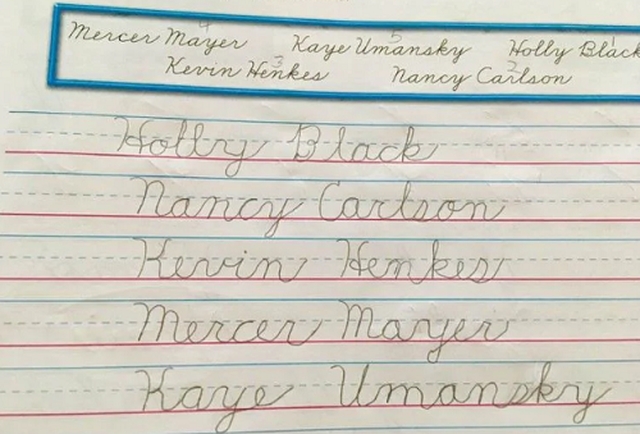 Mercer Mayer Kaye Umansky Holly Black
Kevin Henkes Nancy Carlson
Holly Black
Nancy Carlson
Kevin Henkes
Mercer Mayer
Kaye Umansky